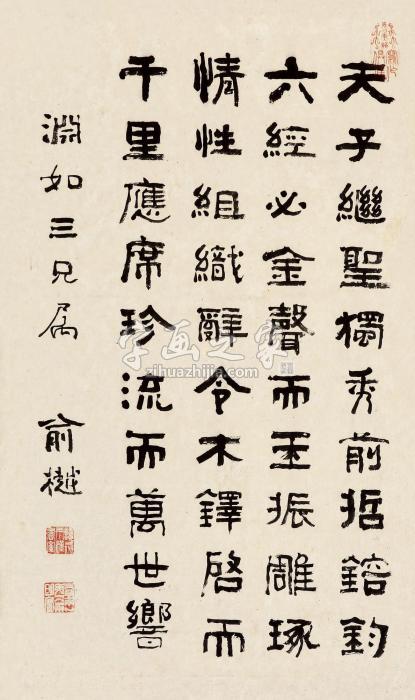 夫子繼聖獨秀前哲鎔鈞
六經必金聲而玉振雕琢
情性組織辭令木鐸啓而
千里應席珍流而萬世響
淵如三兄属 俞樾
字画之家
zihuazhijia.com